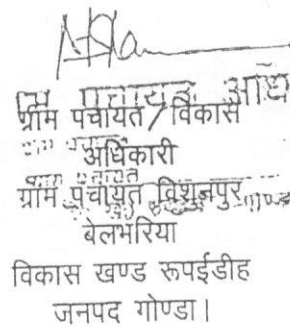 ग्राम पंचायत/विकास
अधिकारी
ग्राम पंचायत विशुनपुर
बेलभरिया
विकास खण्ड रूपईडीह
जनपद गोण्डा।